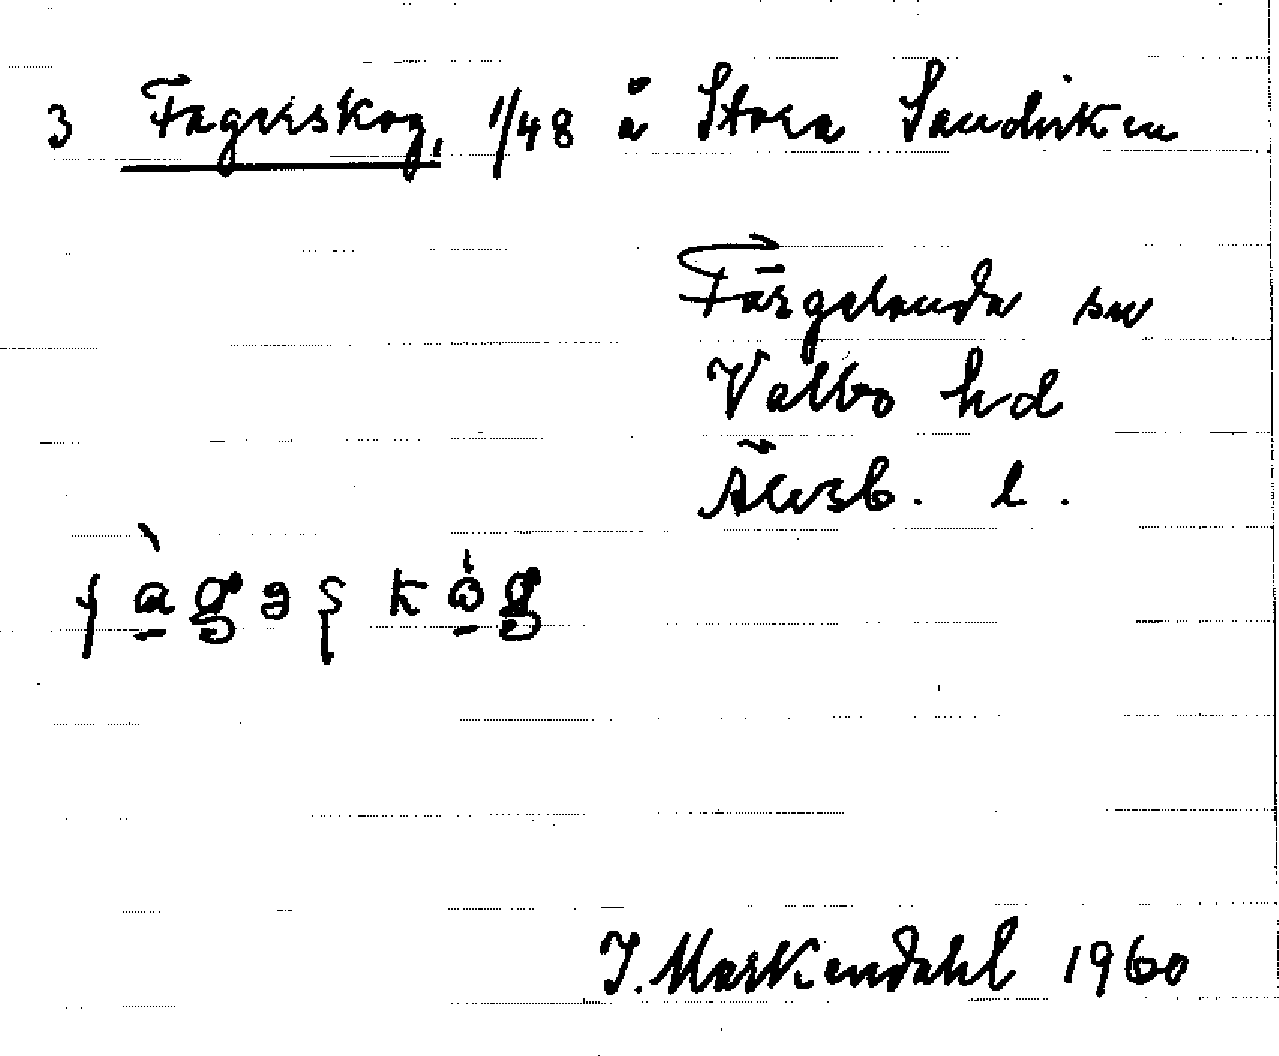 3 Fagerskog, 1/48 å Stora Sandviken
Färgelanda sn
Valbo hd
Älvsb. l.
J. Markendahl 1960